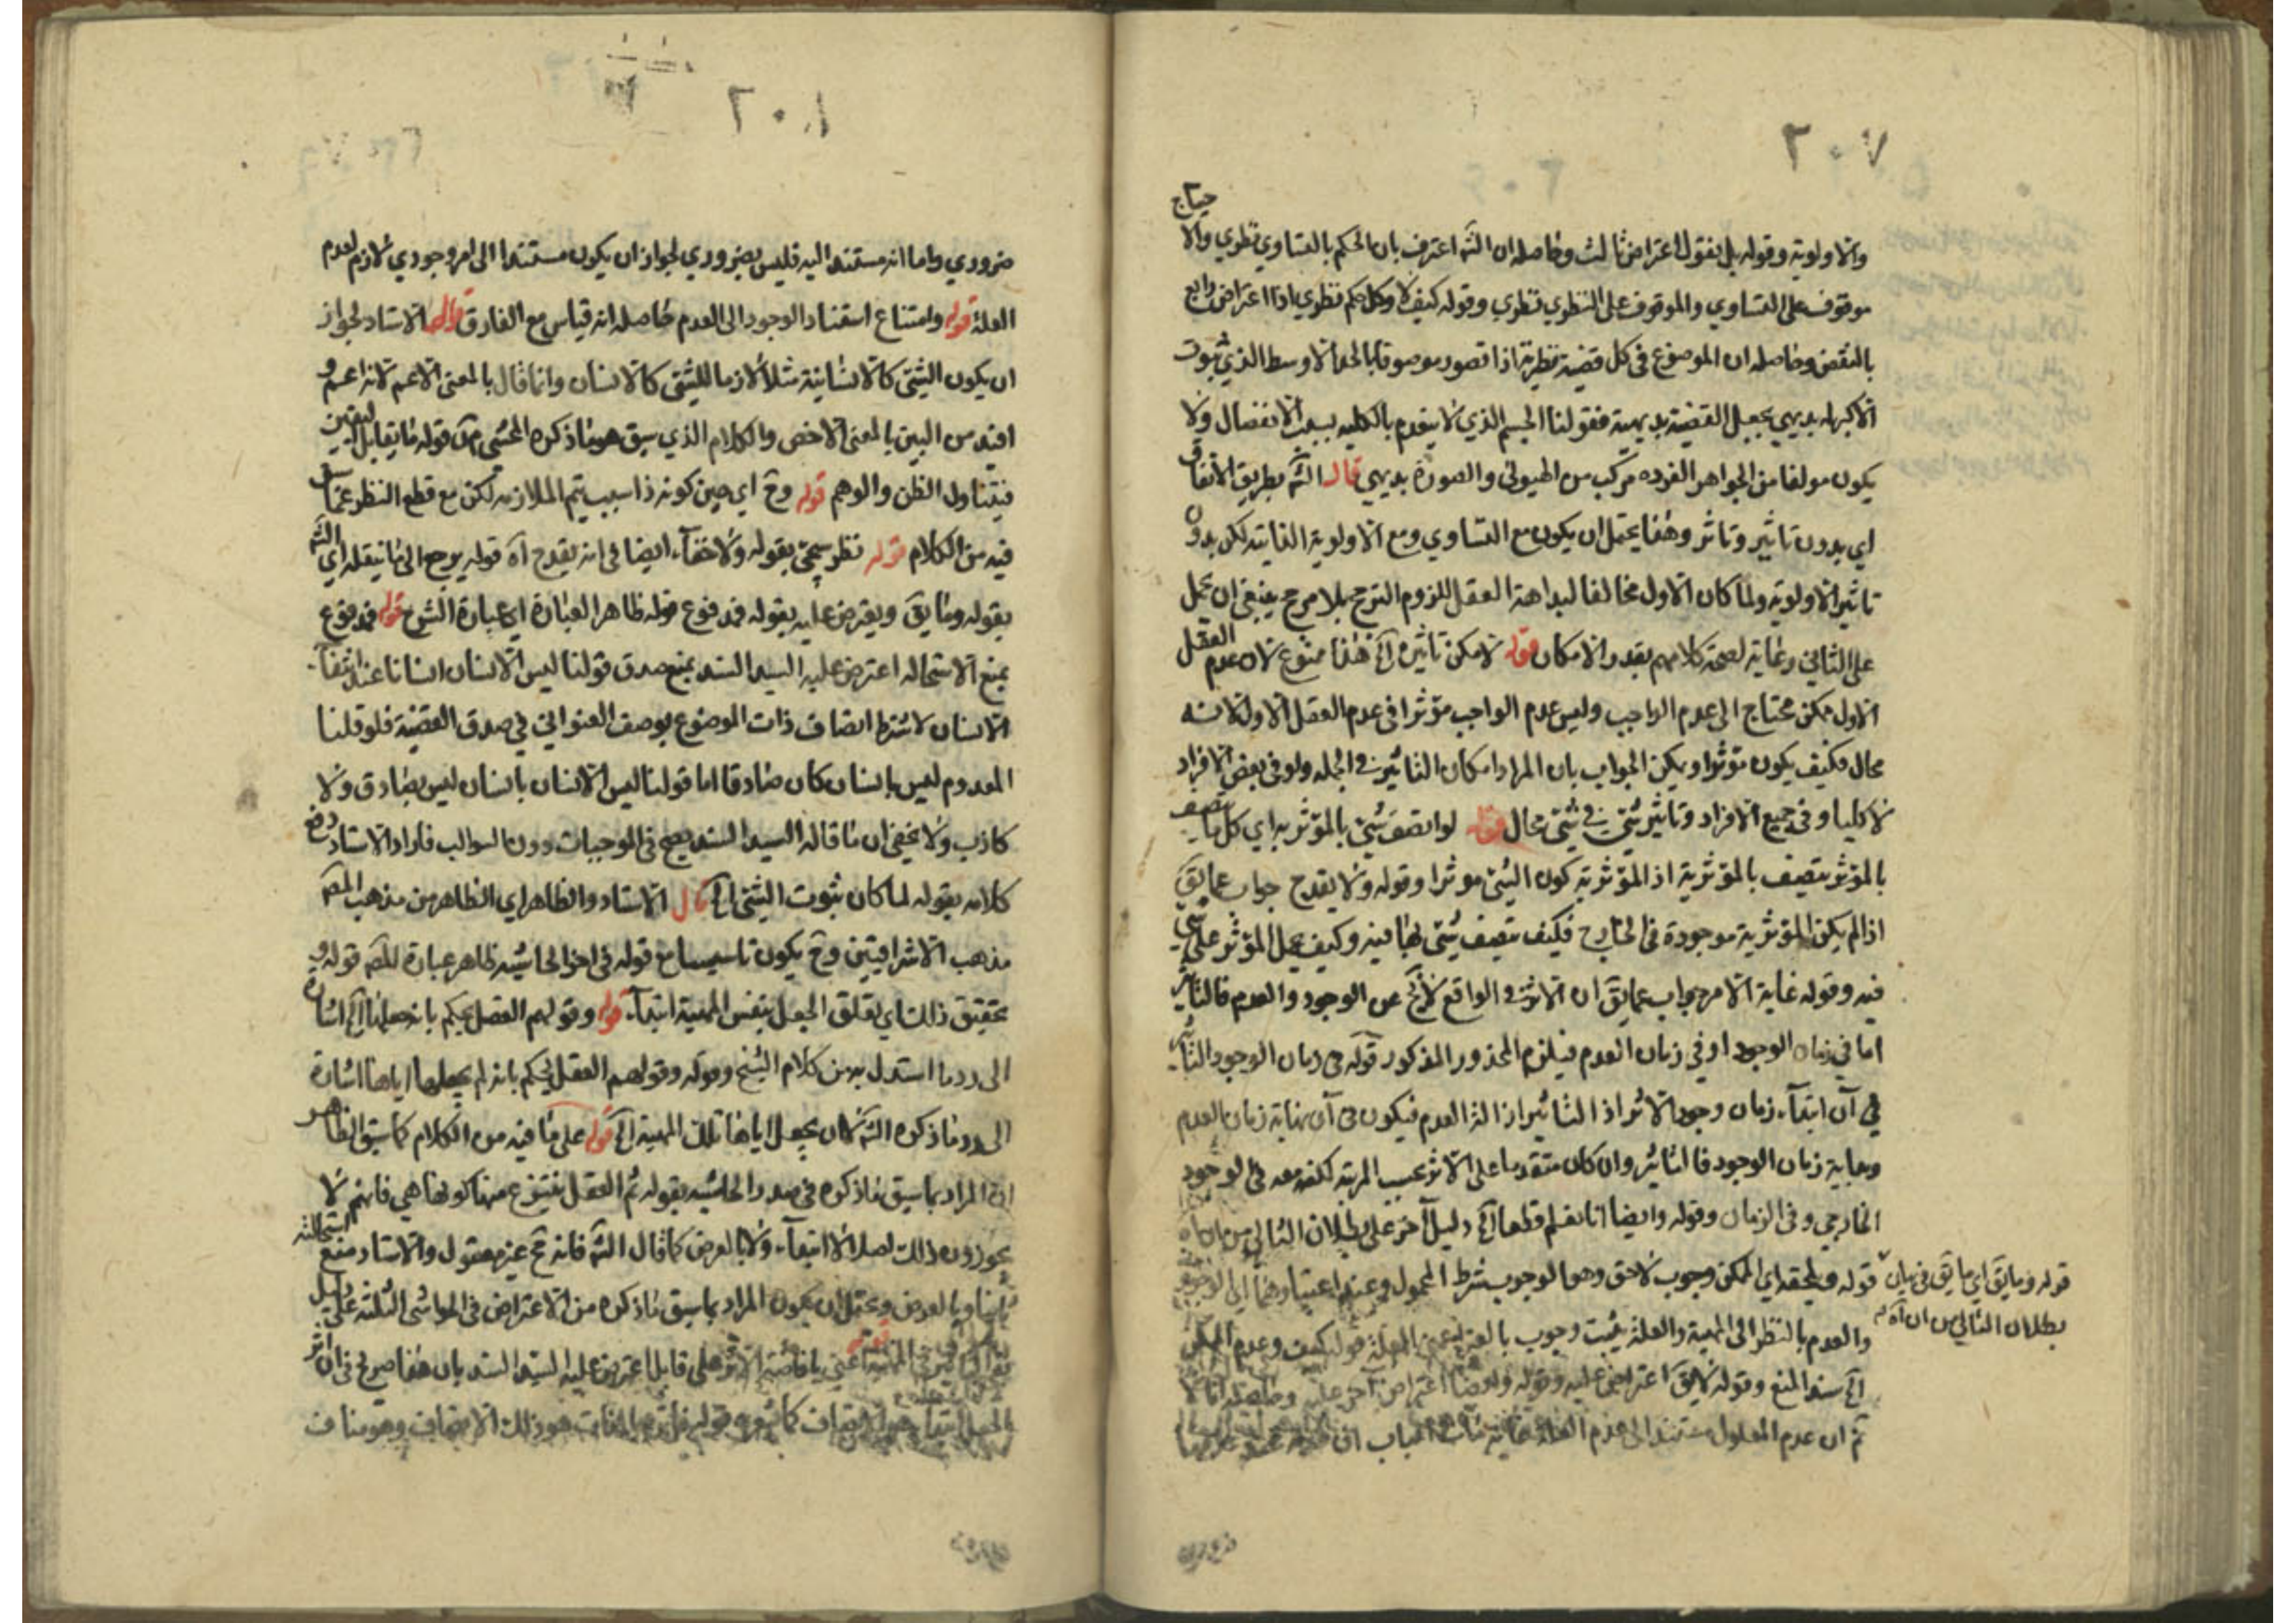 ٢٠٧
والاولوية وقوله بل نقول اعتراض ثالث وحاصله ان الش اعترف بان الحكم بالتساوي نظري والاحتياج
موقوف على التساوي والموقوف على النظري نظري وقوله كيف لا وكل حكم نظري اذا اعتراض رابع
بالنقض وحاصله ان الموضوع في كل قضية نظرية اذا تصور موصوفا بالحد الاوسط الذي ثبوت
الاكبر له بديهي يجعل القضية بديهية فقولنا الجسم الذي لا ينعدم بالكلية بسبب الانفصال ولا
يكون مولفا من الجواهر الفرده مركب من الهيولى والصورة بديهي قال الش بطريق الاتفاق
اي بدون تاثير وتاثر وهذا يحتمل ان يكون مع التساوي ومع الاولوية الذاتية لكن بدون
تاثير الاولوية ولما كان الاول مخالفا لبداهة العقل للزوم الترجح بلا مرجح ينبغي ان يحمل
على الثاني رعاية لصحة كلامهم بقدر الامكان قوله لامكن تاثيره الخ هذا ممنوع لان عدم العقل
الاول ممكن محتاج الى عدم الواجب وليس عدم الواجب مؤثرا في عدم العقل الاول لانه
محال فكيف يكون مؤثرا ويمكن الجواب بان المراد امكان التاثير في الجمله ولو في بعض الافراد
لا كليا وفي جميع الافراد وتاثير شيء في شيء محال قوله لو اتصف شيء بالمؤثرية اي كل ما يتصف
بالمؤثر يتصف بالمؤثرية اذ المؤثرية كون الشيء موثرا وقوله ولا يقدح جواب عما يق
اذا لم يكن المؤثرية موجودة في الخارج فكيف يتصف شيء بها فيه وكيف يحمل المؤثر على شيء
فيه وقوله غاية الامر جواب عما يق ان الاثر في الواقع لا يخ عن الوجود والعدم فالتاثير
اما في زمان الوجود او في زمان العدم فيلزم المحذور المذكور قوله في زمان الوجود التاثير
في آن ابتدآء زمان وجود الاثر اذ التاثير ازالة العدم فيكون في آن نهاية زمان العدم
وبداية زمان الوجود فالتاثير وان كان متقدما على الاثر بحسب المرتبة لكنه معه في الوجود
الخارجي وفي الزمان وقوله وايضا انا نعلم قطعا الخ دليل آخر على بطلان التالي
قوله ويلحقه اي الممكن وجوب لاحق وهو الوجوب بشرط المحمول وعند اعتبارهما
والعدم بالنظر الى المهية والعلة يثبت وجوب بالغير قوله كيف وعدم الممكن
الخ سند المنع وقوله لا يق اعتراض عليه وقوله وايضا اعتراض آخر عليه وحاصله انا لا
نم ان عدم المعلول مستند الى عدم العلة غاية
قوله وما يق اي ما يق في بيان
بطلان التالي من ان آه
٢٠٨
ضروري واما انه مستند اليه فليس بضروري لجواز ان يكون مستندا الى امر وجودي لازم لعدم
العلة قوله وامتناع استناد الوجود الى العدم حاصله انه قياس مع الفارق قال الاستاد لجواز
ان يكون الشيء كالانسانية مثلا لازما للشيء كالانسان وانما قال بالمعنى الاعم لانه اعم و
افيد من البين بالمعنى الاخص والكلام الذي سبق هو ما ذكره المحشي من قوله ما يقابل اليقين
فيتناول الظن والوهم قوله وح اي حين كونه ذا سبب يتم الملازمه لكن مع قطع النظر عما
فيه من الكلام قوله نظر سيجئ بقوله ولا خفآء ايضا في انه يقدح آه قوله يرجع الى ما ينقله اي الش
بقوله وما يق ويعترض عليه بقوله فمدفوع قوله ظاهر العبارة اي عبارة الشرح قوله فمدفوع
بمنع الاستحاله اعترض عليه السيد السند بمنع صدق قولنا ليس الانسان انسانا عند انتفآء
الانسان لاشتراط اتصاف ذات الموضوع بوصف العنواني في صدق القضية فلو قلنا
المعدوم ليس بانسان كان صادقا اما قولنا ليس الانسان بانسان ليس بصادق ولا
كاذب ولا يخفى ان ما قاله السيد السند يصح في الموجبات دون السوالب فاراد الاستاد دفع
كلامه بقوله لما كان ثبوت الشيء الخ قال الاستاد والظاهر اي الظاهر من مذهب المص
مذهب الاشراقيين وح يكون تاسيسا مع قوله في اخر الحاشيه ظاهر عبارة المص قوله و
تحقيق ذلك اي تعلق الجعل بنفس المهية ابتدآء قوله وقولهم العقل يحكم بانه جعلها الخ اشارة
الى رد ما استدل به من كلام الشيخ وقوله وقولهم العقل يحكم بانه لم يجعلها اياها اشارة
الى رد ما ذكره الش كان يجعل اياها تلك المهية الخ قوله على ما فيه من الكلام كما سبق الظاهر
ان المراد بما سبق ما ذكره في صدر الحاشيه بقوله ثم العقل ينتزع منها كونها هي فانهم لا
يجوزون ذلك اصلا لا ابتدآء ولا بالعرض كما قال الش فانه ح غير معقول والاستاد منع استحالته
ثانيا وبالعرض ويحتمل ان يكون المراد بما سبق ما ذكره من الاعتراض في الحواشي الثلثه على دليل
المهية اعني بافاضة الاثر على قابل اعترض عليه السيد السند بان هذا صريح في ان اثر
الجعل ابتدآء هو الاتصاف كما هو هو ذلك الاتصاف وهو مناف